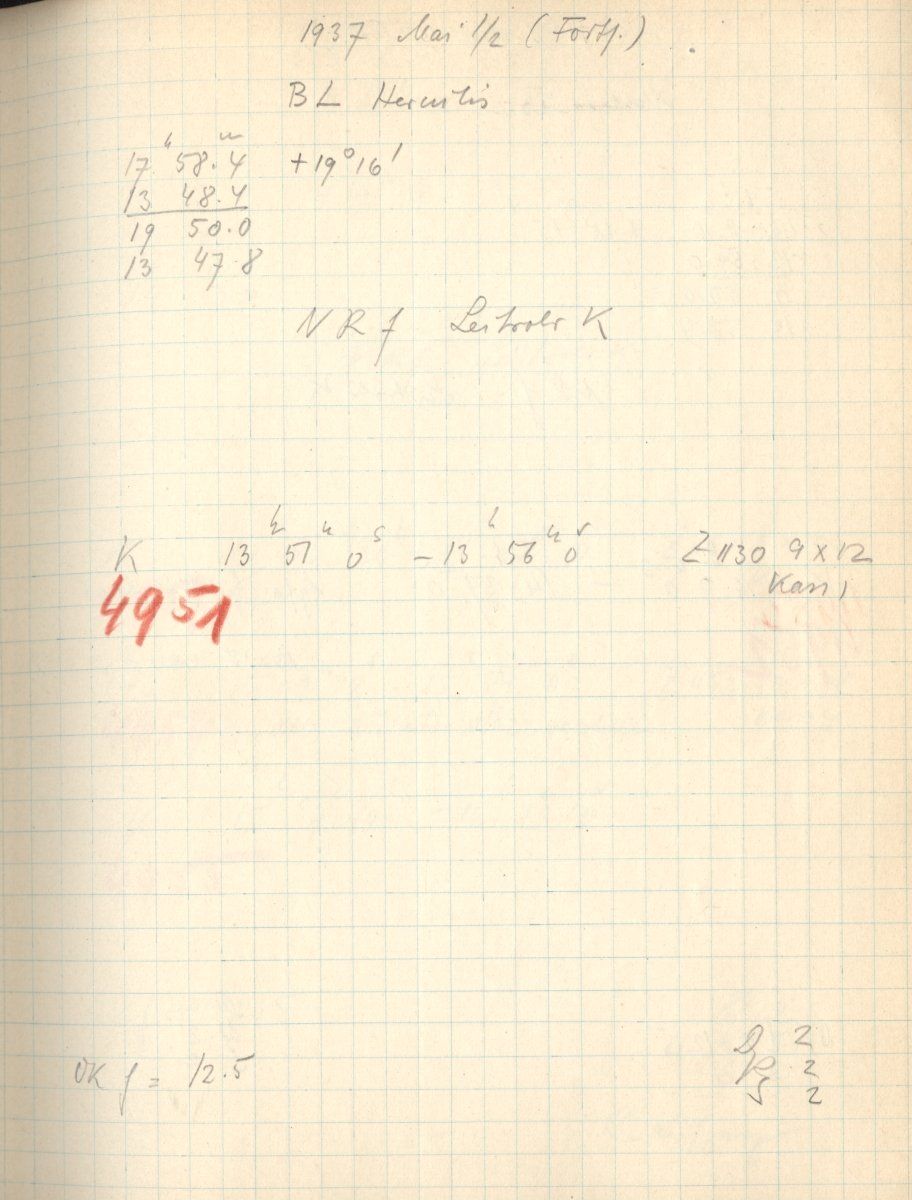 1937 Mai 1/2 (Forts.)
BL Herculis
17ʰ 58.4ᵐ +19° 16'
13 48.4
19 50.0
13 47.8
NRf Leitrohr K
K 13ʰ 51ᵐ 0ˢ – 13ʰ 56ᵐ 0ˢ Z 1130 9x12
Kass 1
4951
D 2
R 2
OK f = 12.5
S 2